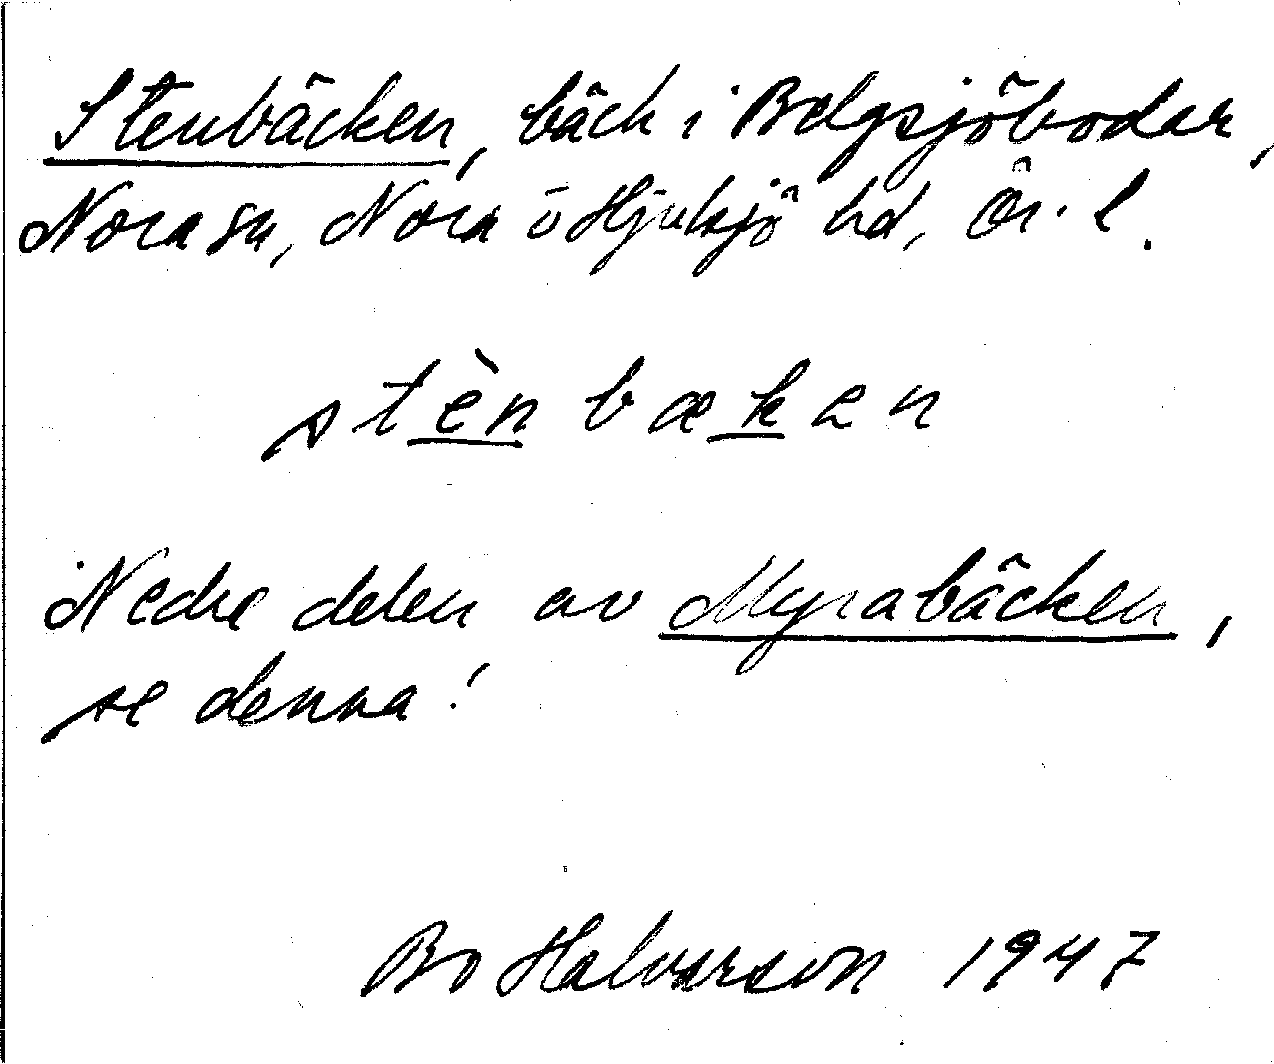 Stenbäcken, bäck i Bälgsjöbodar,
Nora sn, Nora o Hjulsjö hd, Ör. l.
stèn bækən
Nedre delen av Myrabäcken,
se denna!
Bo Halvarson 1947